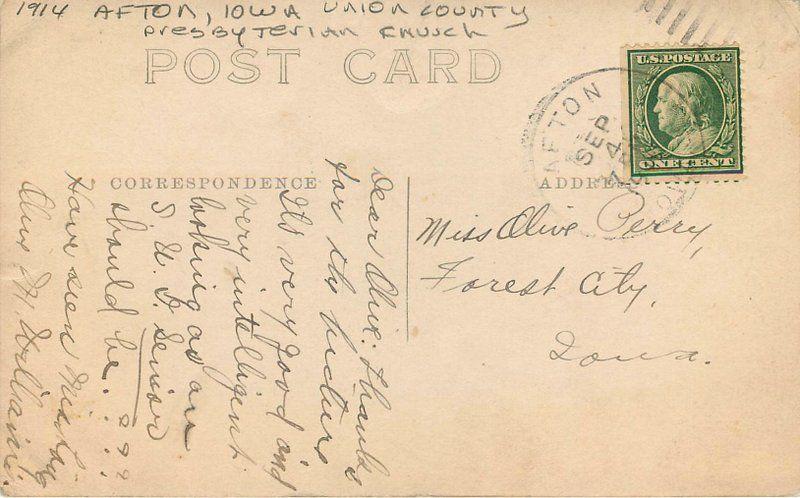 1914 AFTON, IOWA UNION COUNTY
Presbyterian Church
POST CARD
U.S. POSTAGE
ONE CENT
AFTON
SEP
4
CORRESPONDENCE
ADDRESS
Dear Olive: Thanks
for thy picture
It's very good and
very intelligent
looking as an
S.U.I. Senior
should be. ???
Have seen
Olive M. Williams.
Miss Olive Perry,
Forest City,
Iowa.